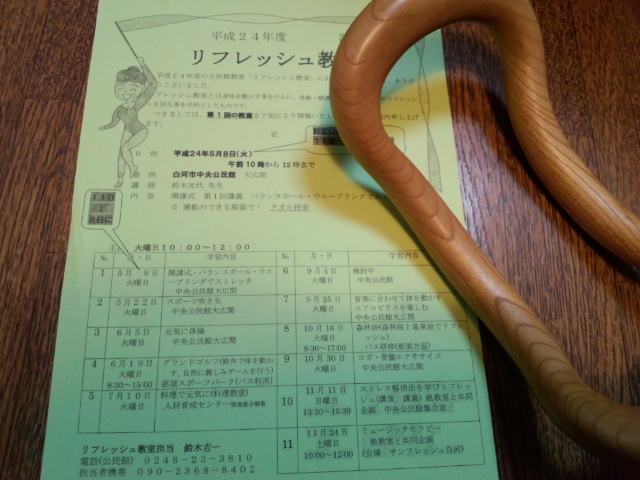 平成24年度
リフレッシュ教
平成24年度の公民館教室「リフレッシュ教室」にお
うございました。
フレッシュ教室とは身体を動かす事を中心に、体験・
を図る事を目的としたものです。
つきましては、第1回の教室を下記により開催いたし
ます。
記
日 時 平成24年5月8日(火)
午前10時から12時まで
場所 白河市中央公民館 大広間
講師 鈴木光代 先生
内容 開講式 第1回講義 バランスボール・ウエーブリングで
☆ 運動のできる服装で! タオル持参
11日
8日に
火曜日10:00~12:00
No. 月・日 学習内容
1 5月 8日 火曜日 開講式・バランスボール・ウエーブリングでストレッチ 中央公民館大広間
2 5月22日 火曜日 スポーツ吹き矢 中央公民館大広間
3 6月5日 火曜日 元気に体操 中央公民館大広間
4 6月19日 火曜日 8:30~15:00 グランドゴルフ(野外で体を動かす、自然に親しみゲームを行う) 那須スポーツパーク(バス利用)
5 7月10日 火曜日 料理で元気に(料理教室) 人材育成センター 現地集合解散
No. 月・日 学習内容
6 9月4日 火曜日 検討中 中央公民館
7 9月25日 火曜日 音楽に合わせて体を動かす、エアロビクスを楽しむ 中央公民館大広間
8 10月16日 火曜日 8:30~17:00 森林浴(森林浴と温泉浴でリフレッシュ) バス研修(那須方面)
9 10月30日 火曜日 ヨガ・骨盤エクササイズ 中央公民館大広間
10 11月11日 日曜日 13:30~15:30 ストレス解消法を学びリフレッシュ(講演、講義) 他教室と共同企画、中央公民館集会室
11 11月24日 土曜日 10:00~12:00 ミュージックセラピー 他教室と共同企画 (会場 サンフレッシュ白河)
リフレッシュ教室担当 鈴木吉一
電話(公民館) 0248-23-3810
担当者携帯 090-2368-8402